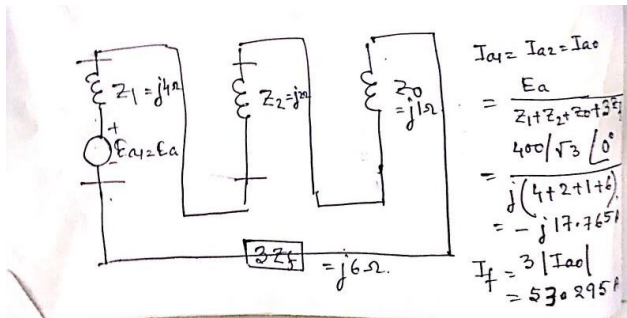 Z1 = j4Ω
+
Ea1=Ea
-
Z2=j2Ω
Z0
=j1Ω
3Zf
=j6Ω.
Ia1= Ia2= Ia0
= Ea
Z1+Z2+Z0+3Zf
= 400/√3 ∠0°
j(4+2+1+6)
= -j17.765A
If = 3|Ia0|
= 53.295A